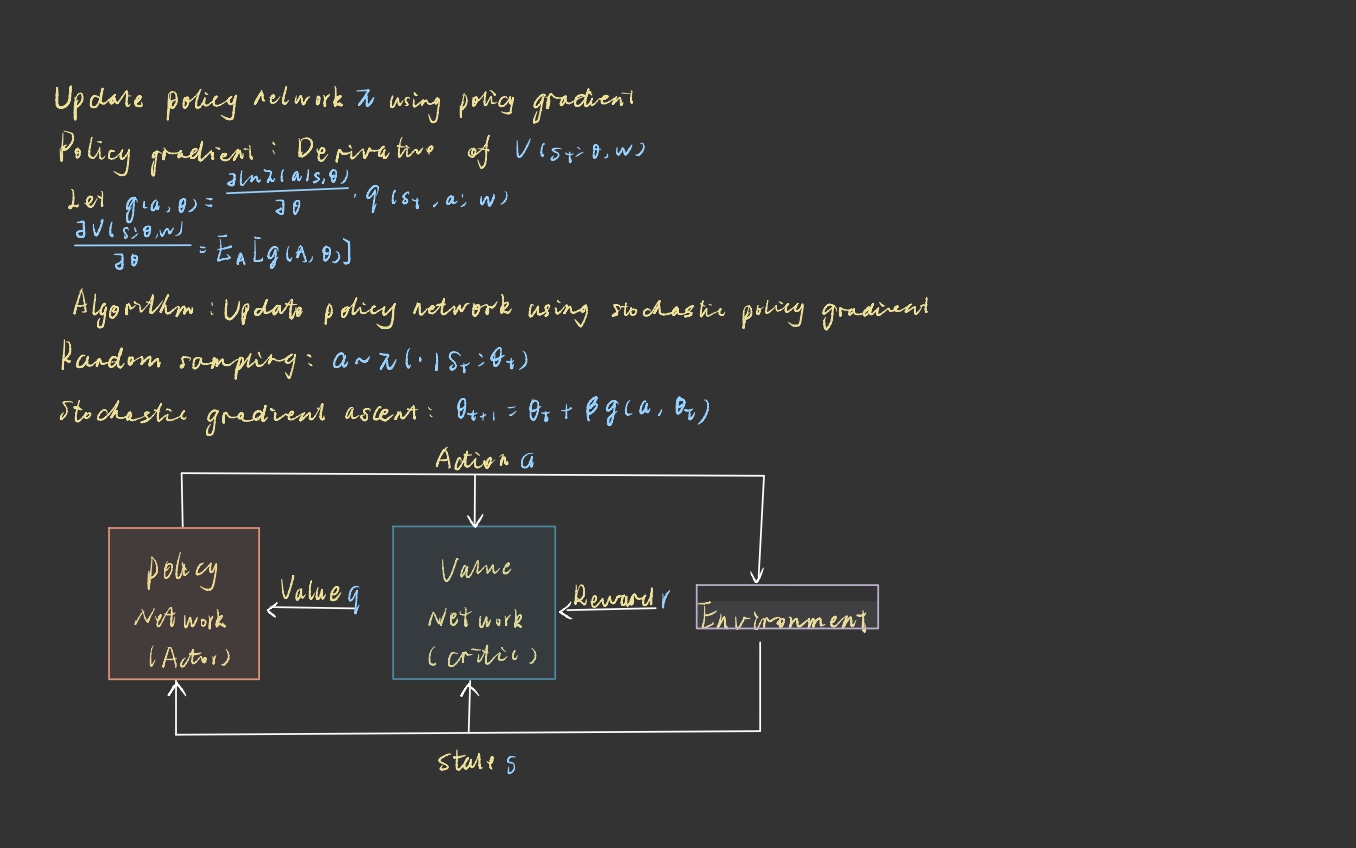 Update policy network π using policy gradient
Policy gradient : Derivative of V(s_t; θ, w)
Let g(a, θ) = ∂ln π(a|s, θ)/∂θ · q(s_t, a; w)
∂V(s; θ, w)/∂θ = E_A[g(A, θ)]
Algorithm : Update policy network using stochastic policy gradient
Random sampling : a ~ π(· | s_t ; θ_t)
Stochastic gradient ascent : θ_{t+1} = θ_t + β g(a, θ_t)
Action a
Policy
Network
(Actor)
Value q
Value
Network
(critic)
Reward r
Environment
State s